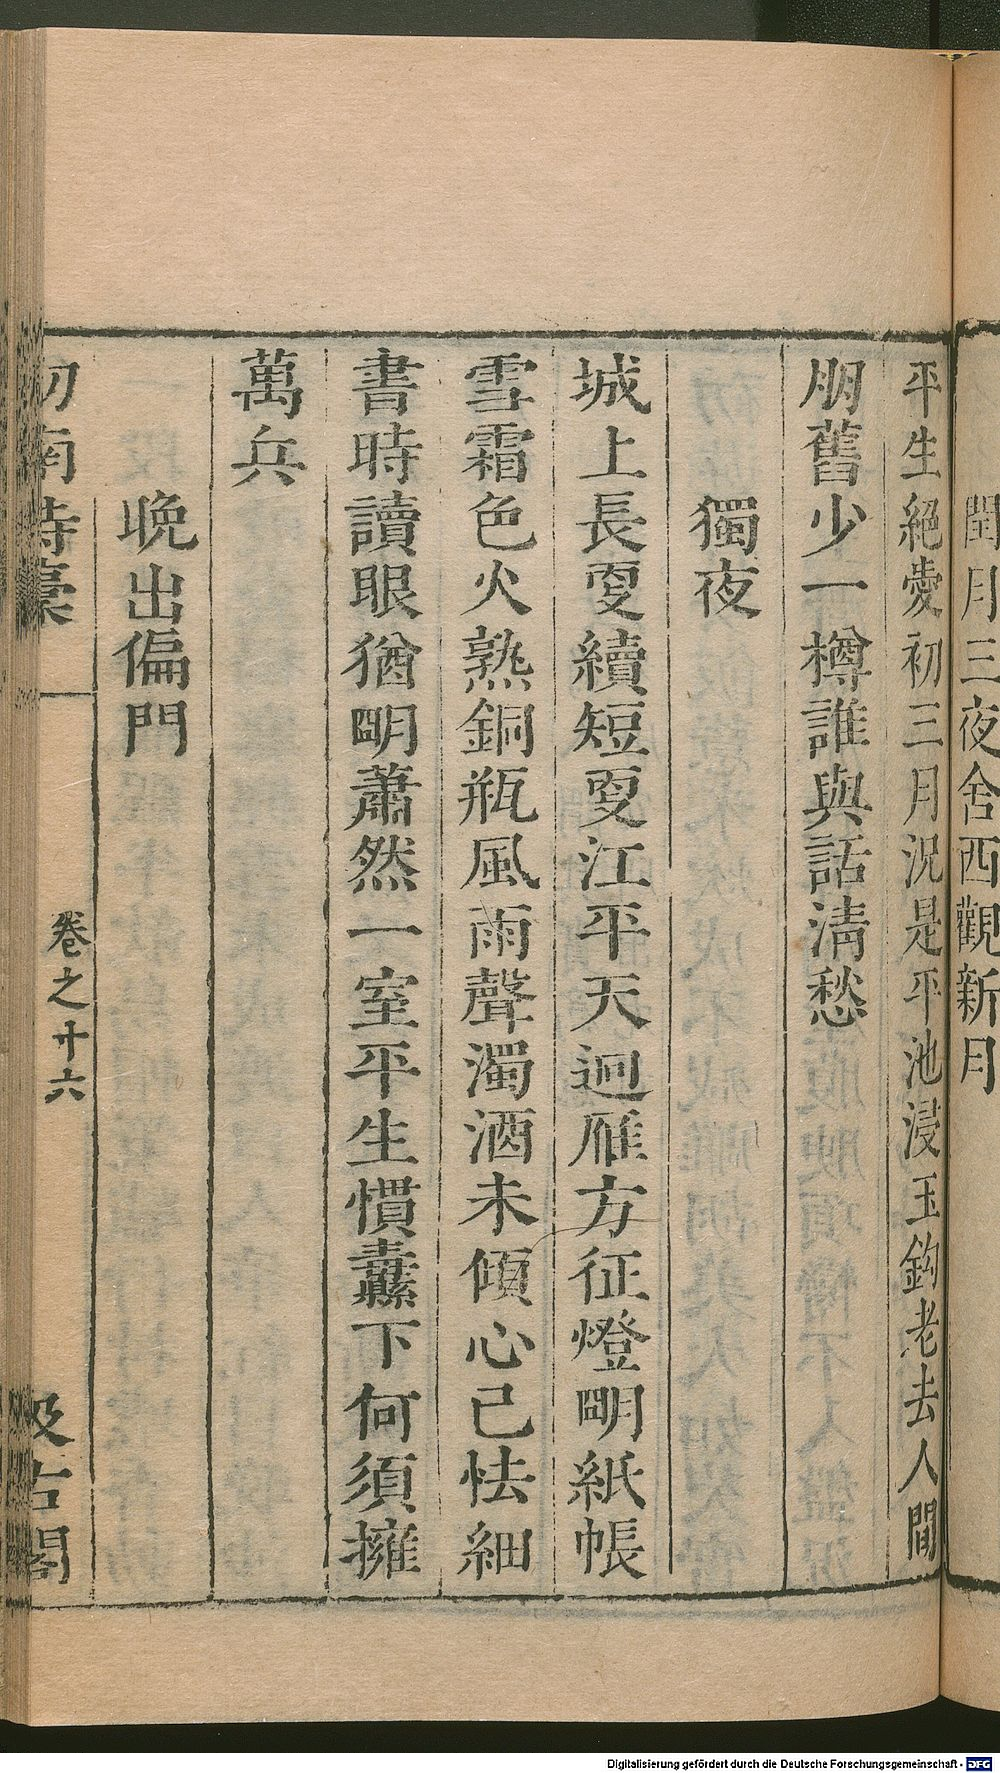 閏月三夜舍西觀新月
平生絕愛初三月況是平池浸玉鈎老去人間
朋舊少一樽誰與話淸愁
獨夜
城上長更續短更江平天迥雁方征燈朙紙帳
雪霜色火熟銅瓶風雨聲濁酒未傾心已怯細
書時讀眼猶朙蕭然一室平生慣纛下何須擁
萬兵
晚出偏門
劍南詩稾
卷之十六
汲古閣
Digitalisierung gefördert durch die Deutsche Forschungsgemeinschaft - DFG